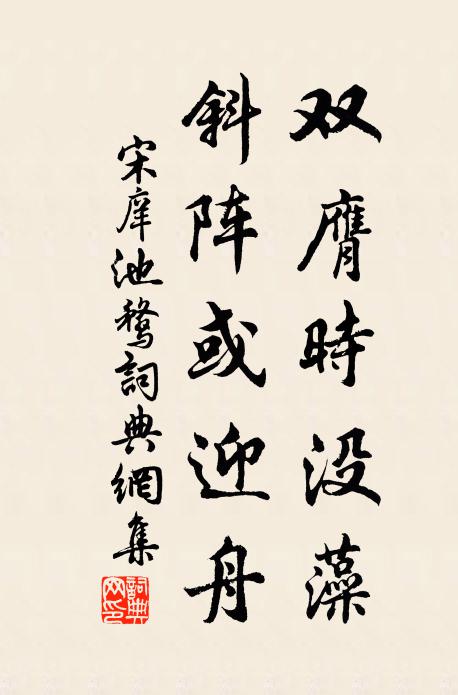 双膺時没藻
斜阵或迎舟
宋庠池鹜詞典網集
詞典网印